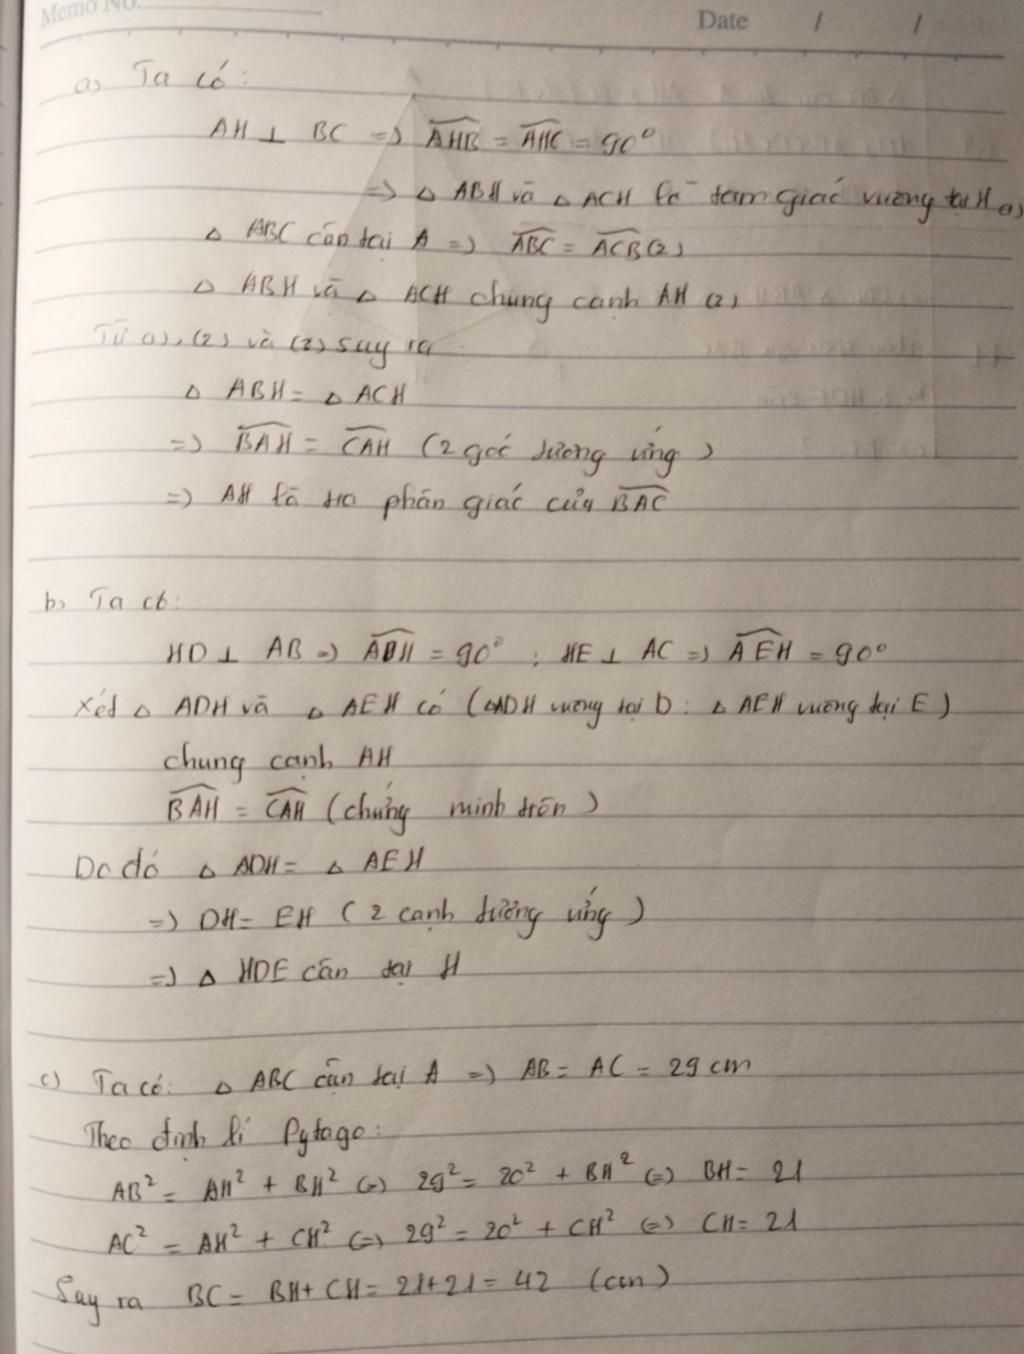 Memo No.
Date / /
a) Ta có:
AH ⊥ BC => \widehat{AHB} = \widehat{AHC} = 90°
=> △ ABH và △ ACH là tam giác vuông tại H (1)
△ ABC cân tại A => \widehat{ABC} = \widehat{ACB} (2)
△ ABH và △ ACH chung cạnh AH (2)
Từ (1), (2) và (2) suy ra
△ ABH = △ ACH
=> \widehat{BAH} = \widehat{CAH} (2 góc tương ứng)
=> AH là tia phân giác của \widehat{BAC}
b) Ta có:
HD ⊥ AB => \widehat{ADH} = 90° ; HE ⊥ AC => \widehat{AEH} = 90°
Xét △ ADH và △ AEH có (△ADH vuông tại D ; △ AEH vuông tại E)
chung cạnh AH
\widehat{BAH} = \widehat{CAH} (chứng minh trên)
Do đó △ ADH = △ AEH
=> DH = EH (2 cạnh tương ứng)
=> △ HDE cân tại H
c) Ta có: △ ABC cân tại A => AB = AC = 29 cm
Theo định lí Pytago:
AB² = AH² + BH² <=> 29² = 20² + BH² <=> BH = 21
AC² = AH² + CH² <=> 29² = 20² + CH² <=> CH = 21
Suy ra BC = BH + CH = 21 + 21 = 42 (cm)